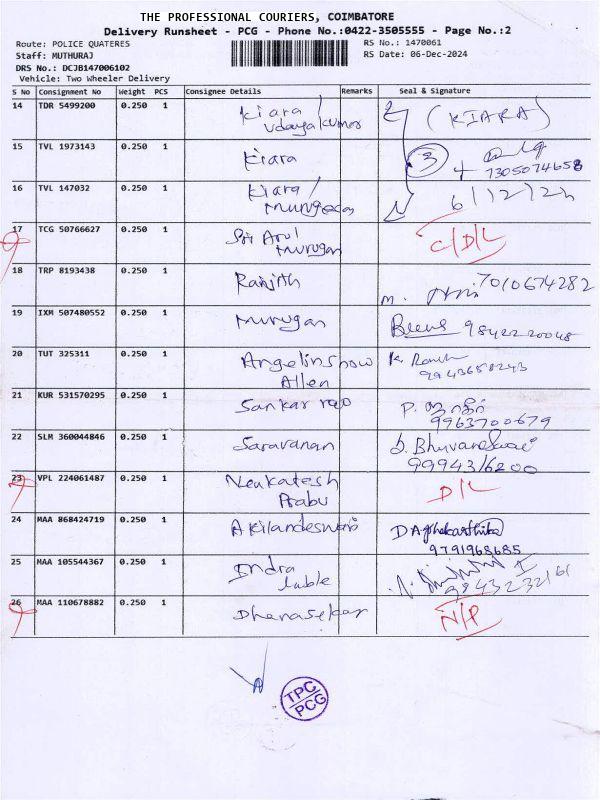 THE PROFESSIONAL COURIERS, COIMBATORE
Delivery Runsheet - PCG - Phone No.:0422-3505555 - Page No.:2
Route: POLICE QUATERES
RS No.: 1470061
Staff: MUTHURAJ
RS Date: 06-Dec-2024
DRS No.: DCJB147006102
Vehicle: Two Wheeler Delivery
S No Consignment No Weight PCS Consignee Details Remarks Seal & Signature
14 TDR 5499200 0.250 1 Kiara / Udayakumar (KIARA)
15 TVL 1973143 0.250 1 Kiara 3
7305074658
16 TVL 147032 0.250 1 Kiara / Murugesan 6/12/24
17 TCG 50766627 0.250 1 Sri Arul Murugan C/D/L
18 TRP 8193438 0.250 1 Ranjith 7010674282
19 IXM 507480552 0.250 1 Murugan 9842220048
20 TUT 325311 0.250 1 Angelinshow Allen K.
9943658243
21 KUR 531570295 0.250 1 Sankar rao P.
9963700679
22 SLM 360044846 0.250 1 Saravanan D. Bhuvaneswari
9994316200
23 VPL 224061487 0.250 1 Venkatesh Prabu D/L
24 MAA 868424719 0.250 1 Akilandeswari
9791968685
25 MAA 105544367 0.250 1 Indra
9843232161
26 MAA 110678882 0.250 1 Dhanasekar N/P
TPC
PCG